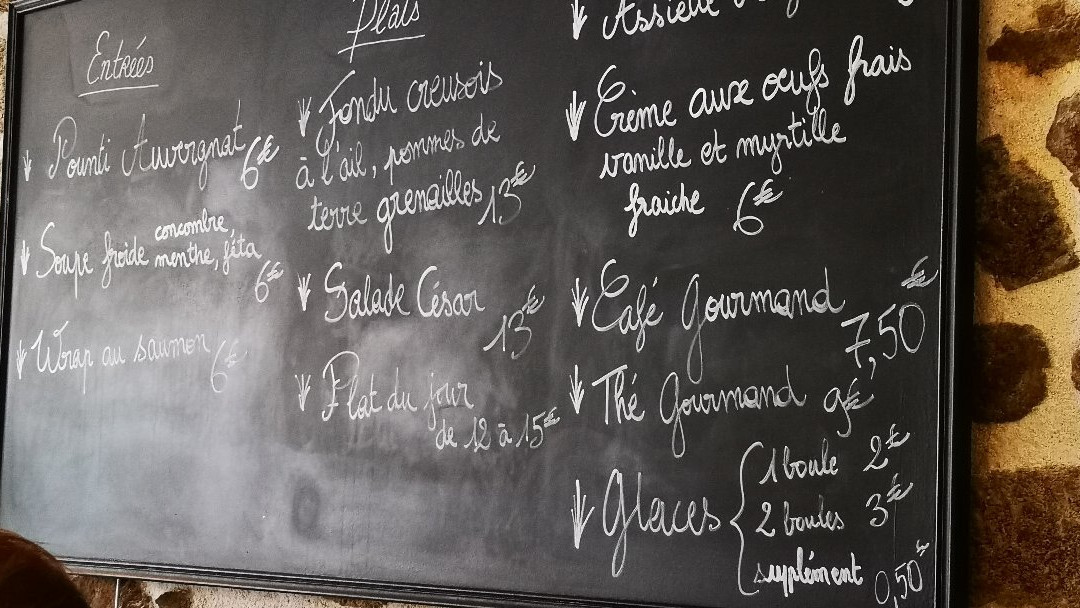 Entrées
Pounti Auvergnat 6€
Soupe froide concombre,
menthe, féta
6€
Wrap au saumon 6€
Plats
Fondu creusois
à l'ail, pommes de
terre grenailles 13€
Salade César
13€
Plat du jour
de 12 à 15€
Assiette
Crème aux oeufs frais
vanille et myrtille
fraiche 6€
Café Gourmand €
7,50
Thé Gourmand 9€
Glaces
1 boule 2€
2 boules 3€
suplément 0,50€